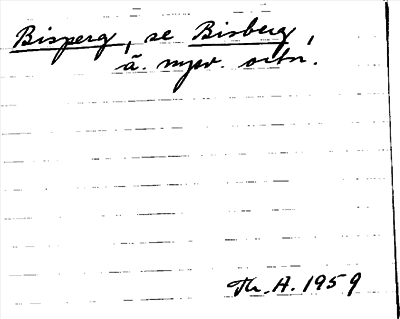 Bisperg, se Bisberg,
ä. nysv. ortn.
Th. A. 1959